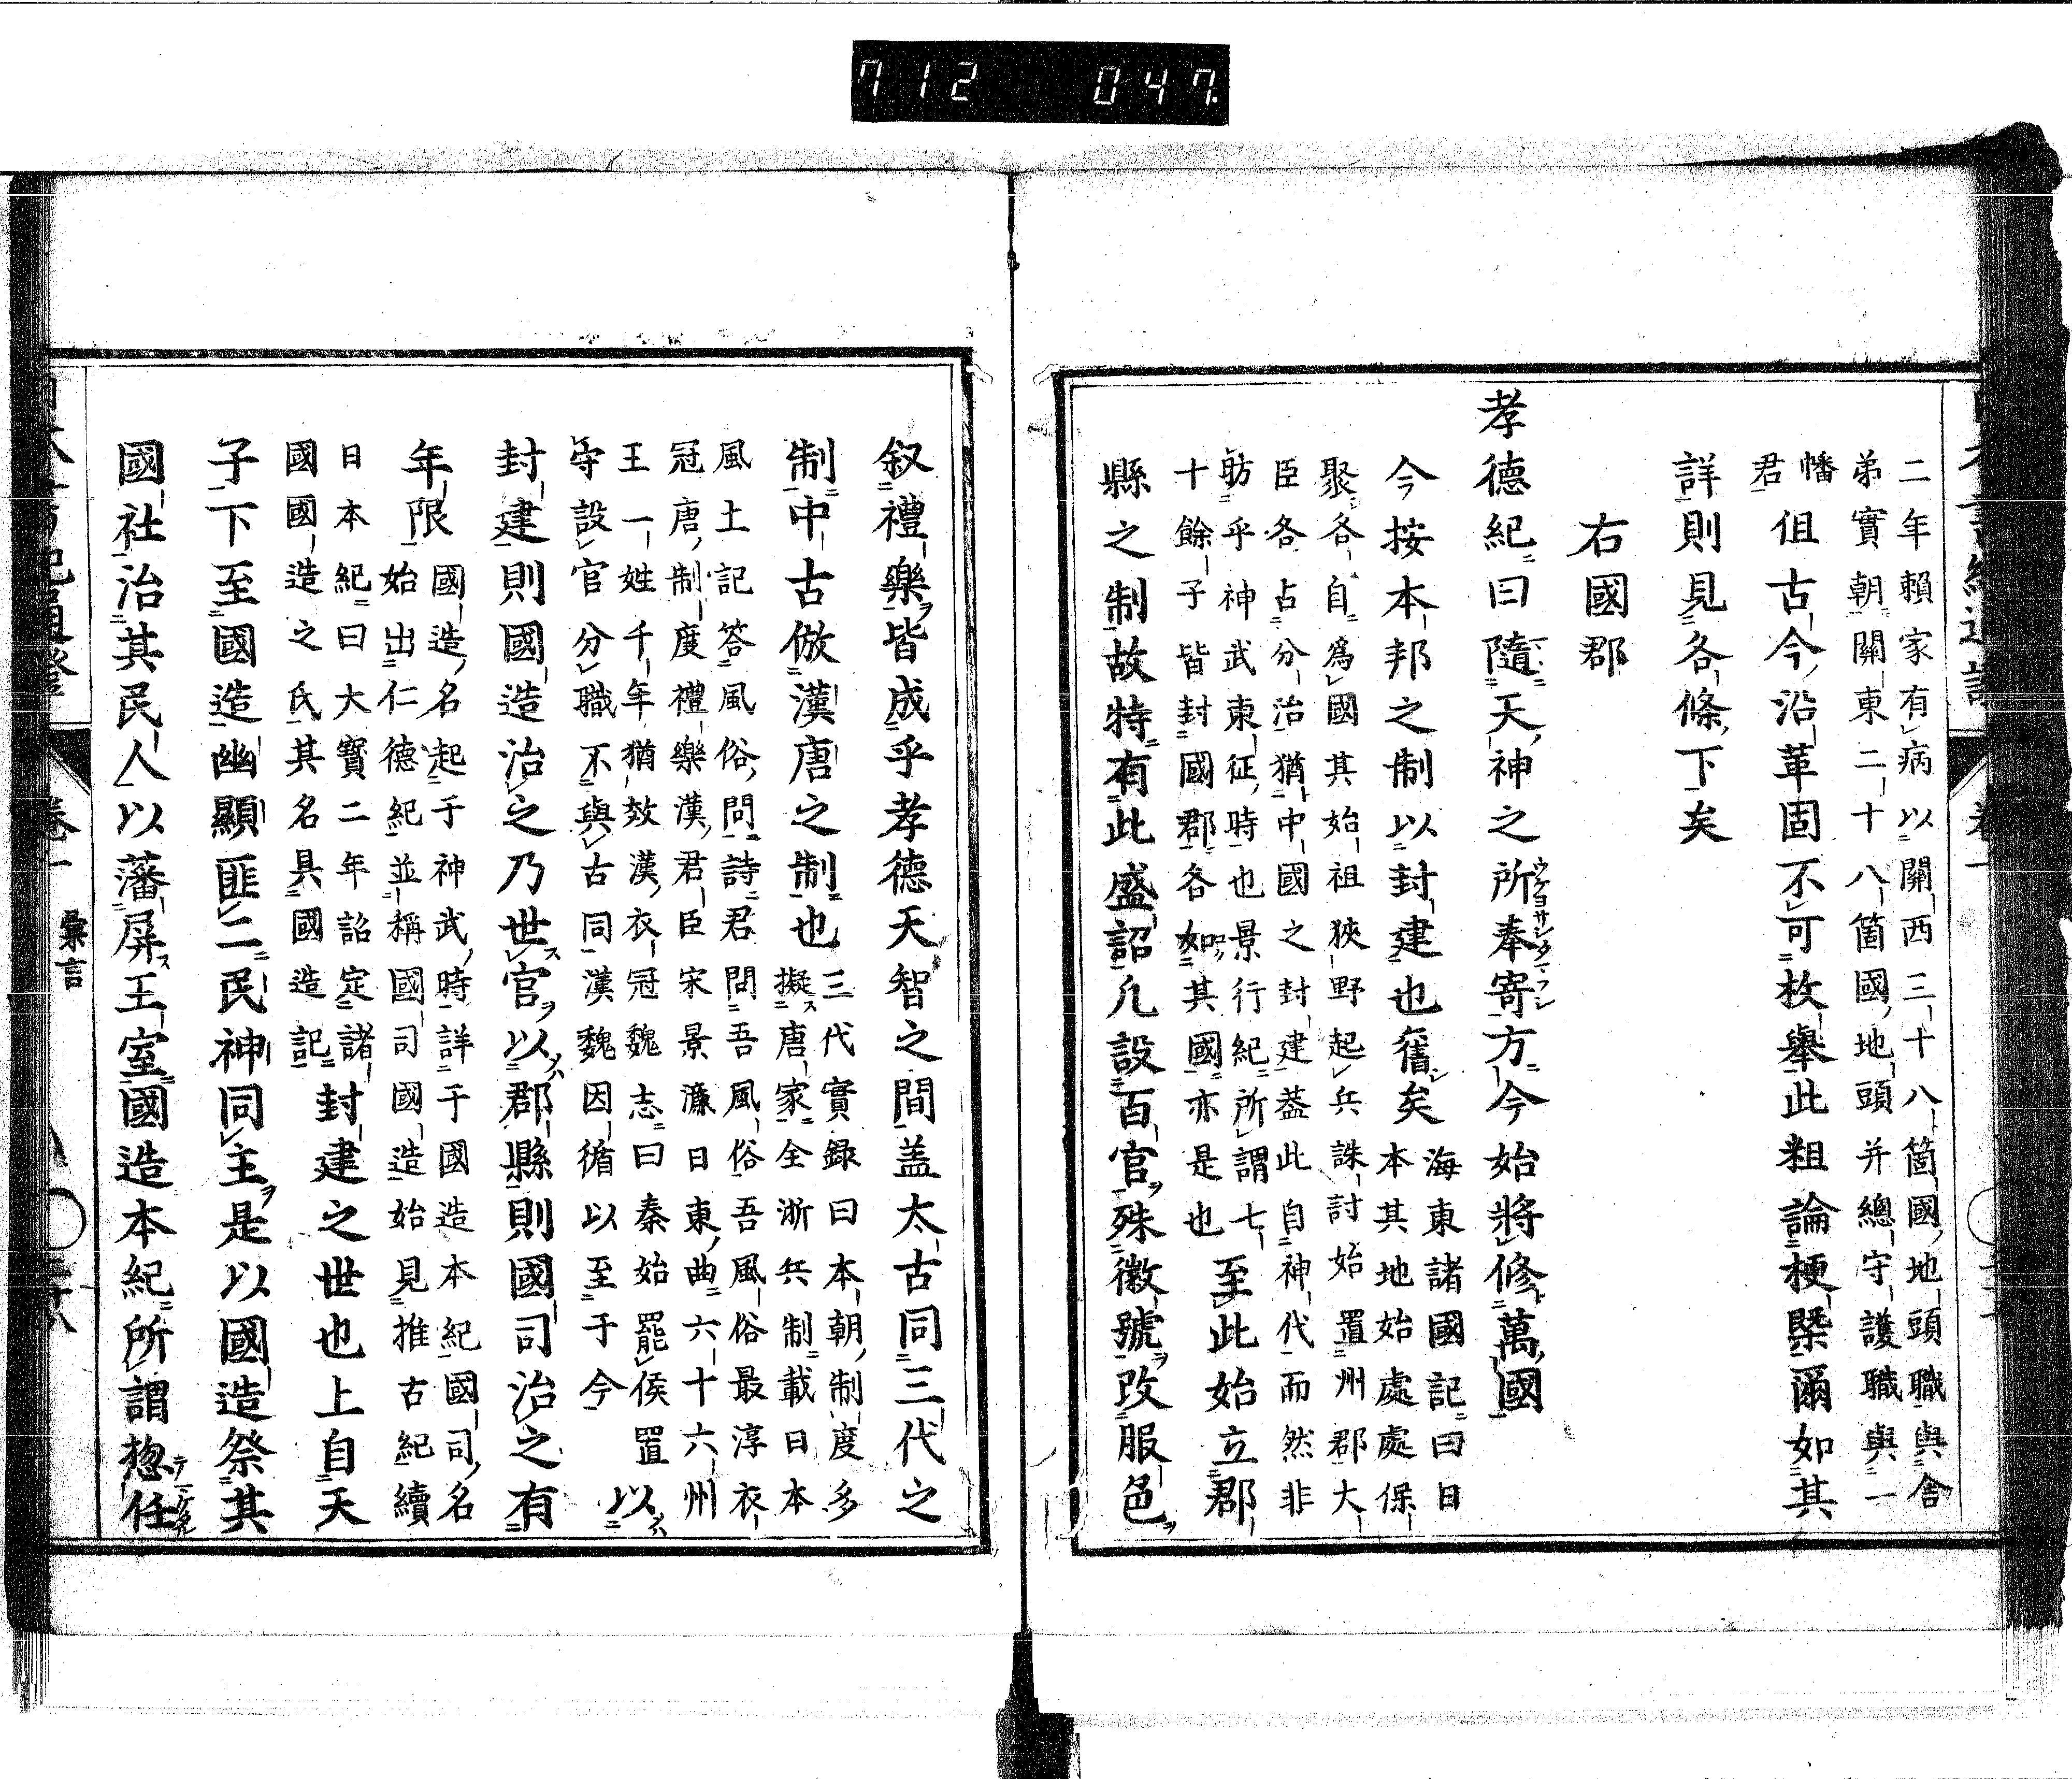 712 047
二年頼家有病以關西三十八箇國地頭職與舍
弟實朝關東二十八箇國地頭并總守護職與一
幡
君
但古今沿革固不可枚舉此粗論梗槩爾如其
詳則見各條下矣
右國郡
孝德紀曰隨天神之所奉寄方今始將修萬國
ウケヨサシタマフシ
今按本邦之制以封建也舊矣
海東諸國記曰日
本其地始處處保
聚各自爲國其始祖狹野起兵誅討始置州郡大
臣各占分治猶中國之封建葢此自神代而然非
昉乎神武東征時也景行紀所謂七
十餘子皆封國郡各如其國亦是也
至此始立郡
縣之制故特有此盛詔凡設百官殊徽號改服色
叙禮樂皆成乎孝德天智之間盖太古同三代之
制中古倣漢唐之制也
三代實録曰本朝制度多
擬唐家全浙兵制載日本
風土記答風俗問詩君問吾風俗吾風俗最淳衣
冠唐制度禮樂漢君臣宋景濂日東曲六十六州
王一姓千年猶效漢衣冠魏志曰秦始罷侯置
守設官分職不與古同漢魏因循以至于今
以
封建則國造治之乃世官以郡縣則國司治之有
年限
國造名起于神武時詳于國造本紀國司名
始出仁德紀並稱國司國造始見推古紀續
日本紀曰大寶二年詔定諸
國國造之氏其名具國造記
封建之世也上自天
子下至國造幽顯匪二民神同主是以國造祭其
國社治其民人以藩屏王室國造本紀所謂惣任
卷一
彙言